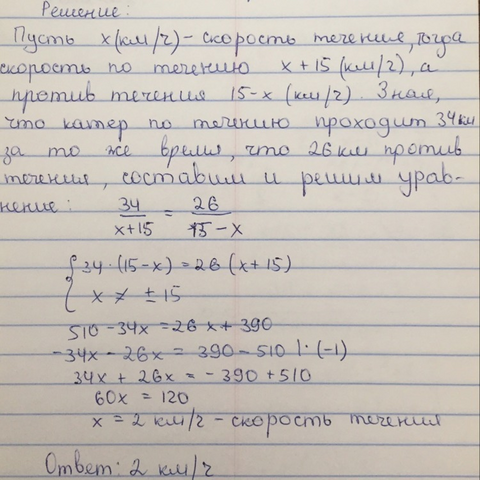 Решение:
Пусть x(км/ч) - скорость течения, тогда
скорость по течению x + 15 (км/ч), а
против течения 15 - x (км/ч). Зная,
что катер по течению проходит 34 км
за то же время, что 26 км против
течения, составим и решим урав-
нение: 34/(x+15) = 26/(15-x)
{ 34·(15-x) = 26(x+15)
x ≠ ±15
510 - 34x = 26x + 390
-34x - 26x = 390 - 510 |·(-1)
34x + 26x = -390 + 510
60x = 120
x = 2 км/ч - скорость течения
Ответ: 2 км/ч